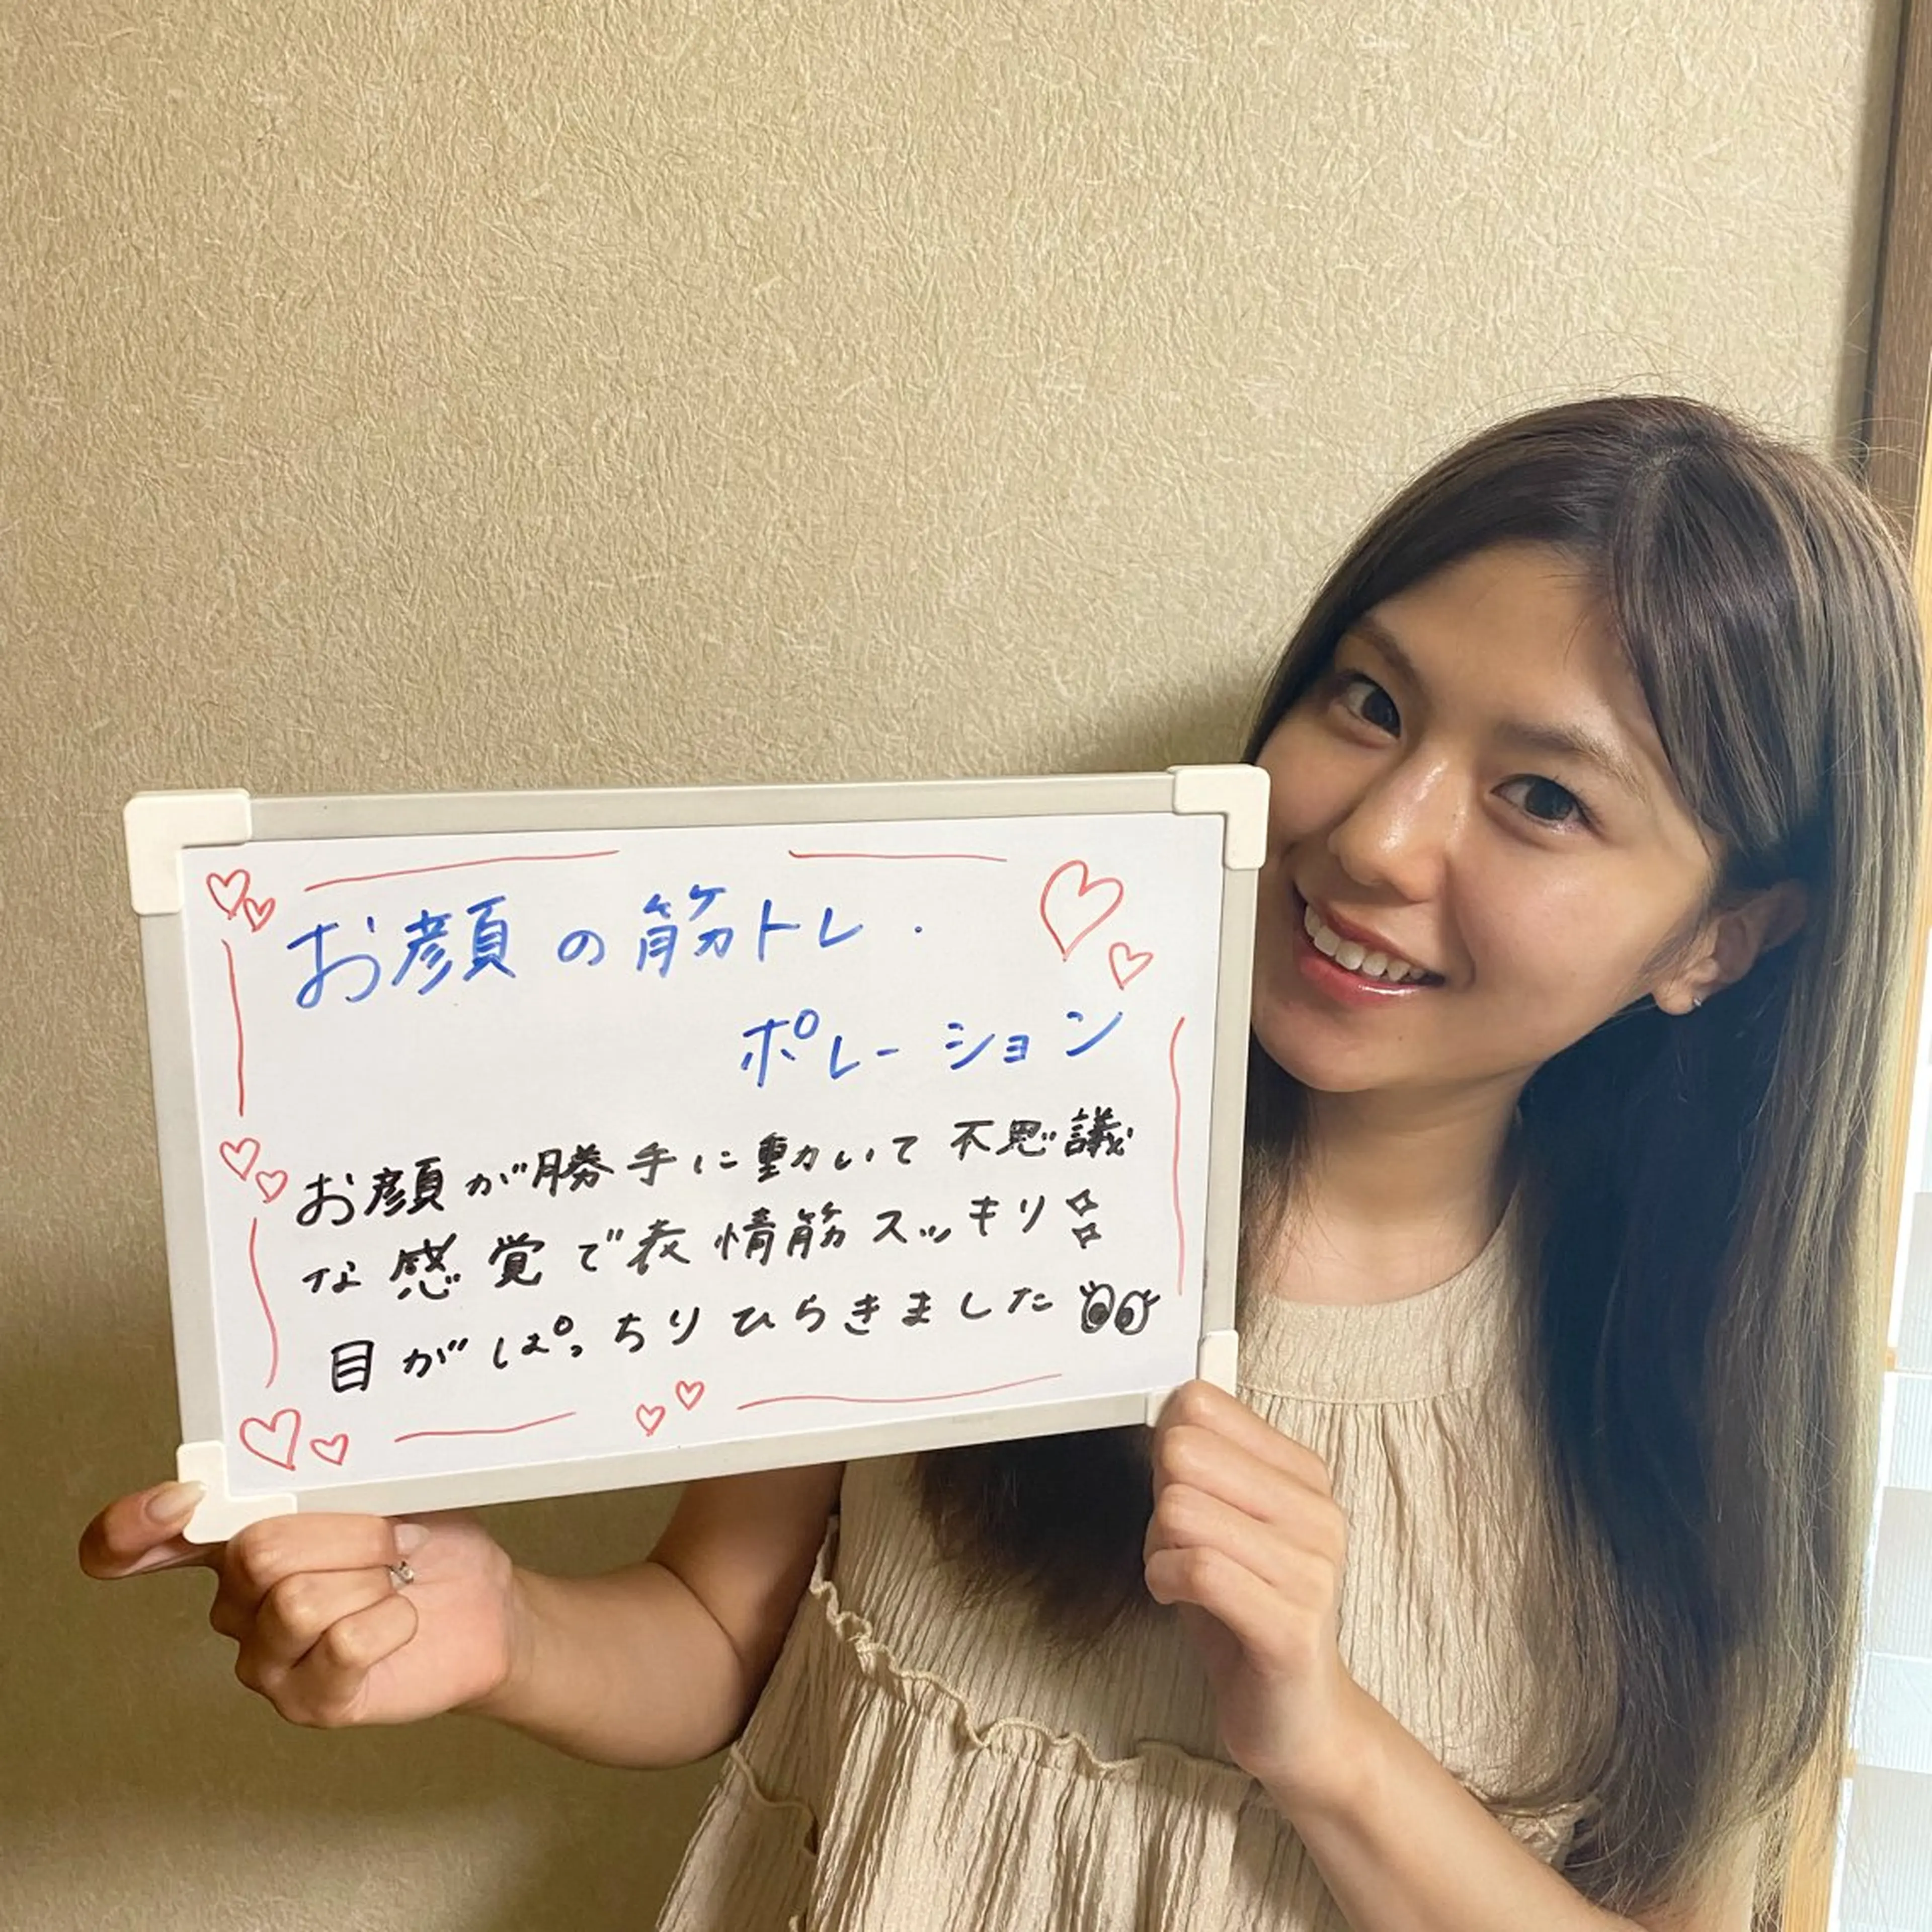 お顔の筋トレ.
ポレーション
お顔が勝手に動いて不思議
な感覚で表情筋スッキリ
目がぱっちりひらきました